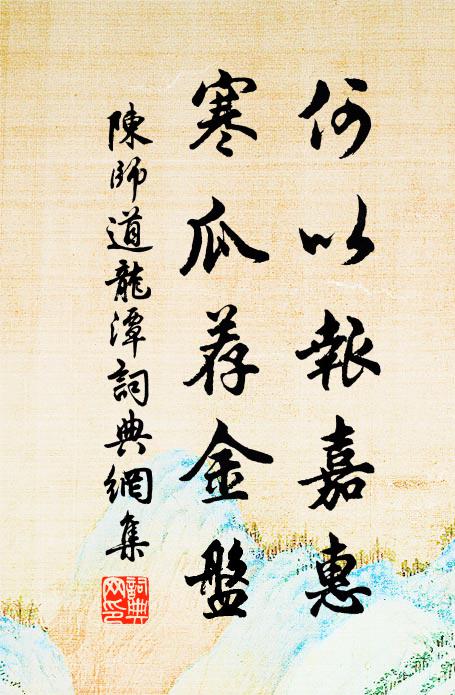 何以報嘉惠
寒瓜荐金盤
陳師道龍潭詞典網集
詞典